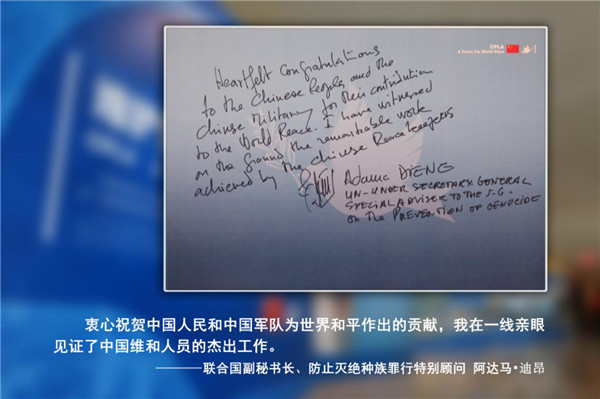 CPLA
A Force For World Peace
Heartfelt Congratulations
to the Chinese People and the
Chinese Military for their contribution
to the World Peace. I have witnessed
on the ground the remarkable work
achieved by the Chinese Peacekeepers
Adama DIENG
UN-UNDER SECRETARY GENERAL
SPECIAL ADVISER TO THE S.G.
on the PREVENTION OF GENOCIDE
衷心祝贺中国人民和中国军队为世界和平作出的贡献，我在一线亲眼
见证了中国维和人员的杰出工作。
———联合国副秘书长、防止灭绝种族罪行特别顾问 阿达马•迪昂